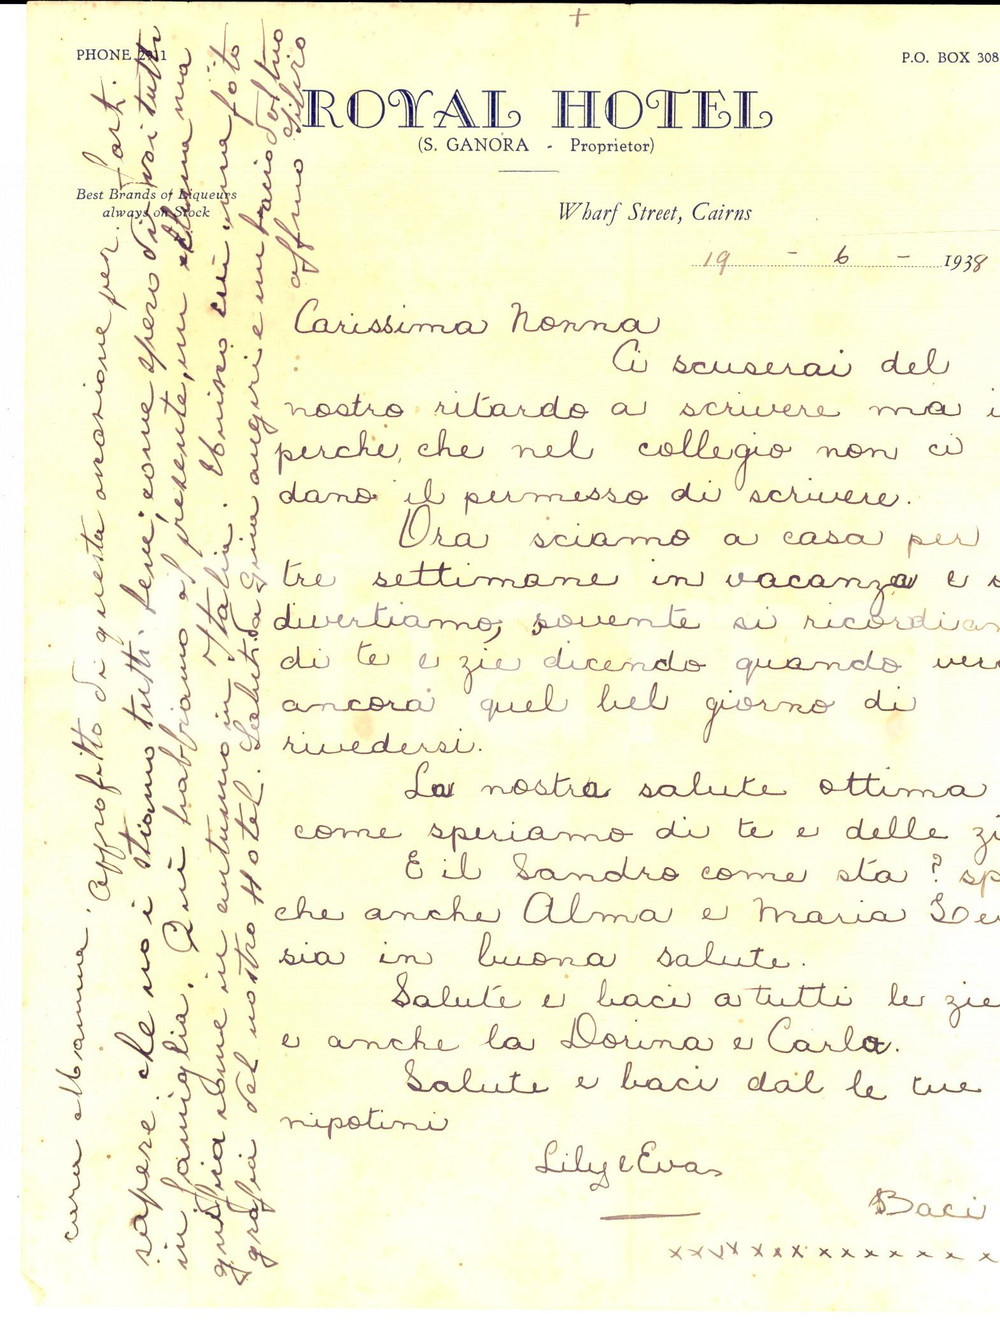 PHONE 2911
P.O. BOX 308
ROYAL HOTEL
(S. GANORA - Proprietor)
Best Brands of Liqueurs
always on Stock
Wharf Street, Cairns
19 - 6 - 1938
Carissima Nonna
Ci scuserai del
nostro ritardo a scrivere ma i
perche, che nel collegio non ci
dano il permesso di scrivere.
Ora sciamo a casa per
tre settimane in vacanza e s
divertiamo, sovente si ricordiam
di te e zie dicendo quando verr
ancora quel bel giorno di
rivedersi.
La nostra salute ottima
come speriamo di te e delle zi
E il Sandro come sta? sp
che anche Alma e Maria
sia in buona salute.
Salute e baci a tutti le zie
e anche la Dorina e Carla.
Salute e baci dal le tue
nipotini
Lily e Eva
Baci
xxxxxxxxxxxxxxx
cara Mamma. Approfitto di questa occasione per farti
sapere che noi stiamo tutti bene, come spero di voi tutti
in famiglia. Qui habbiamo al presente, un
in autunno in Italia. Unisco qui una foto
grafia del nostro Hotel. Saluti da Gina auguri e un bacio dal tuo
affmo Silvio